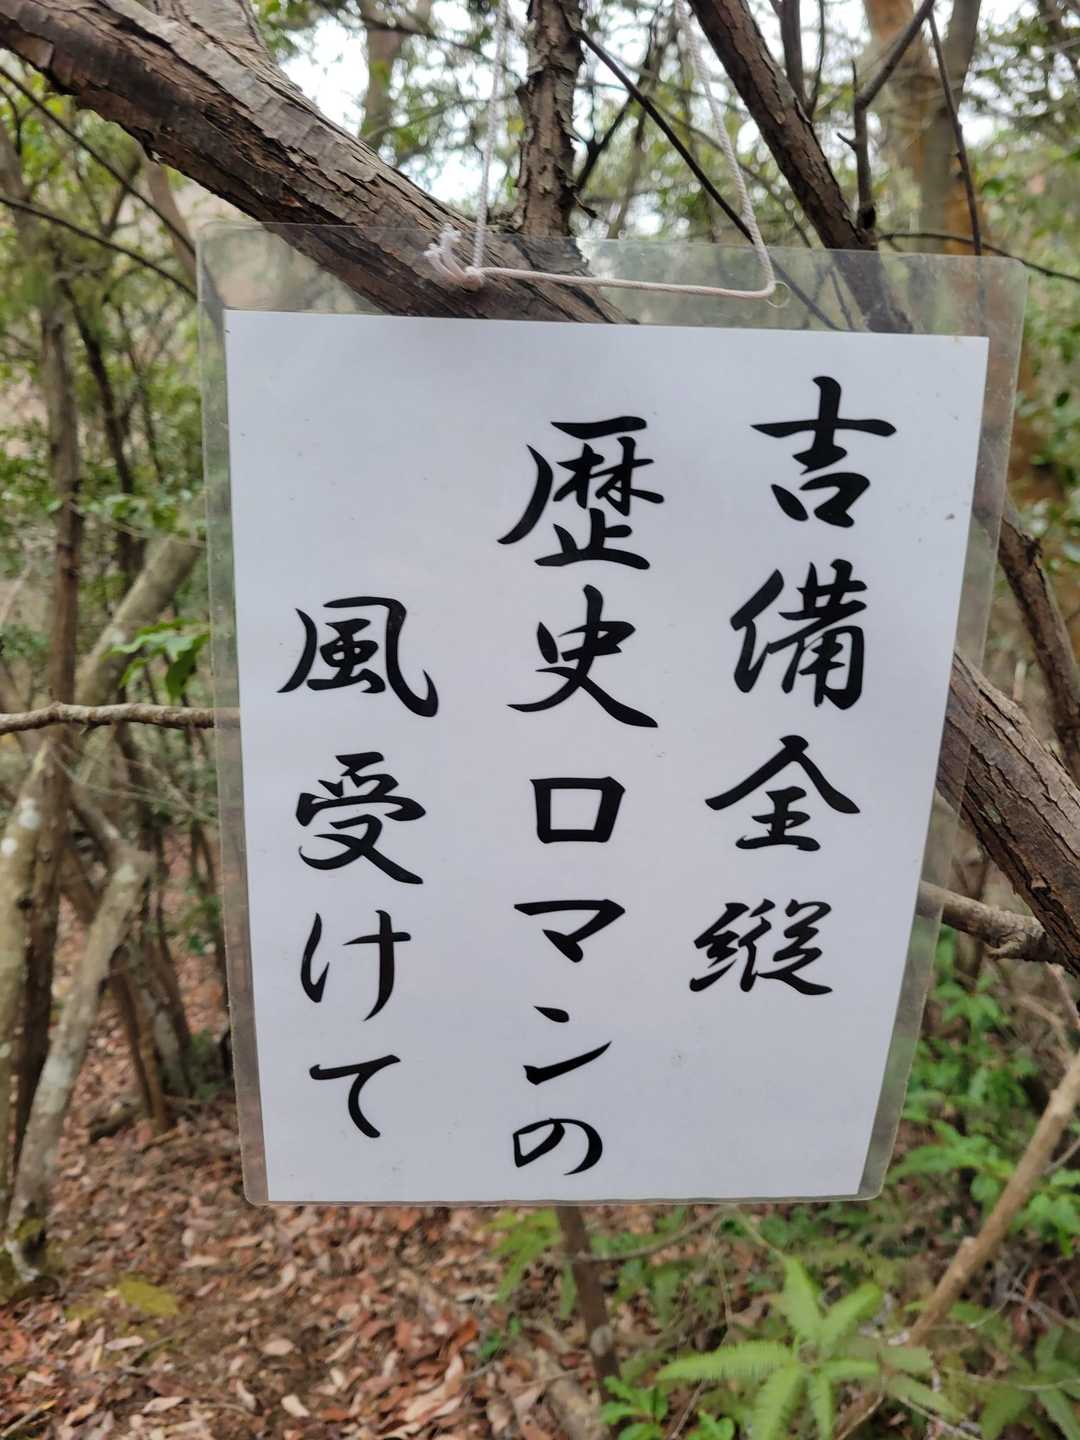 吉備全縦
歴史ロマンの
風受けて